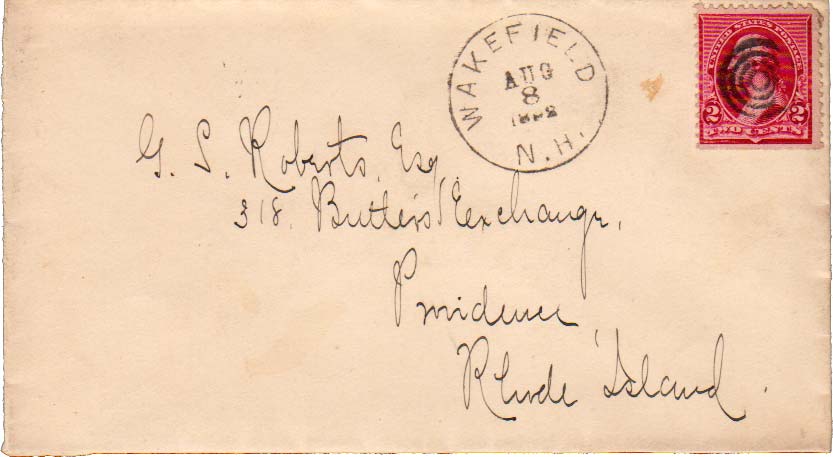 WAKEFIELD
AUG
8
1892
N.H.
UNITED STATES POSTAGE
2 2
TWO CENTS
G. S. Roberts, Esq,
318, Butler's Exchange,
Providence
Rhode Island.